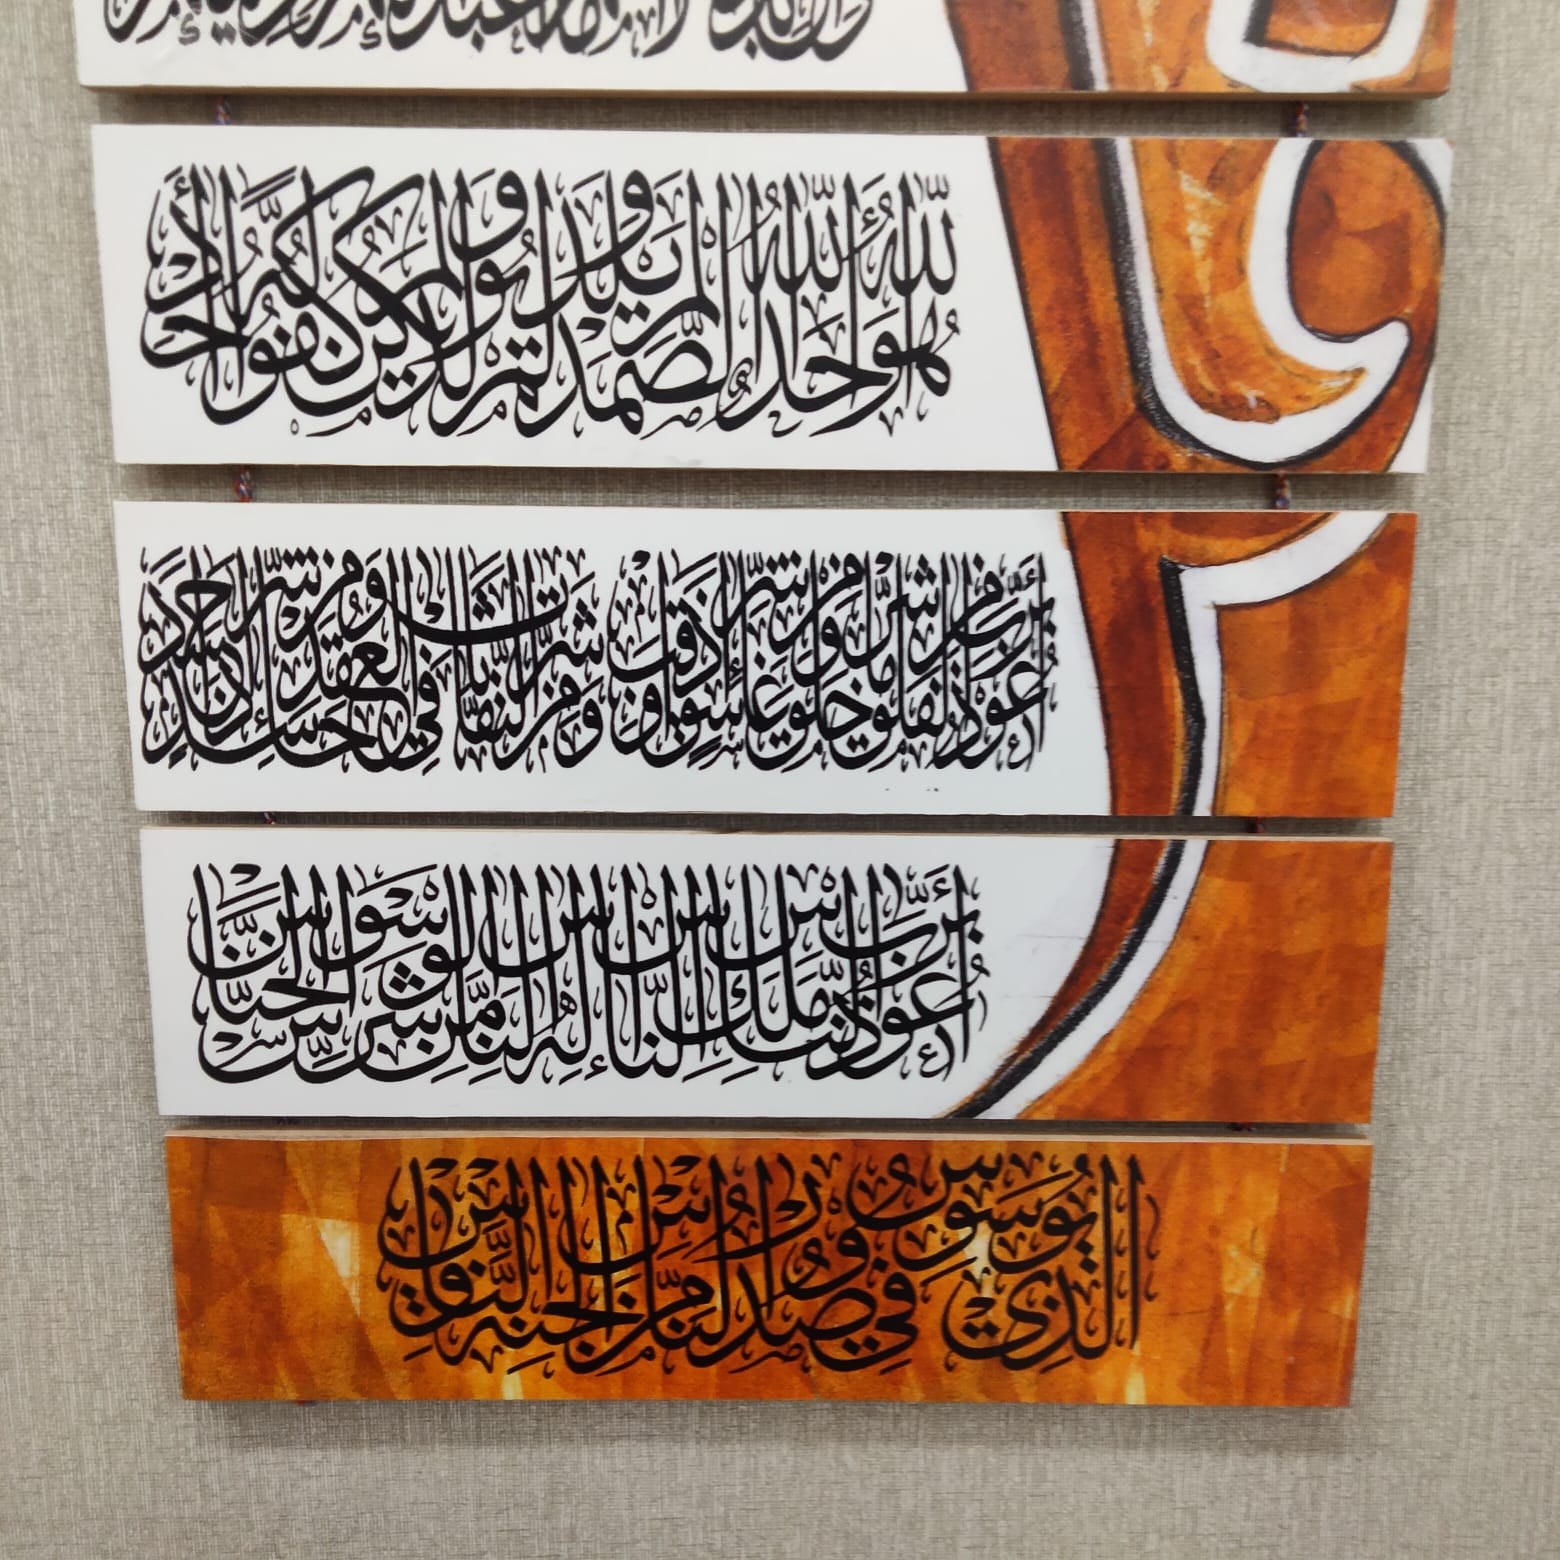 هُوَ اللّٰهُ أَحَدٌ اللّٰهُ الصَّمَدُ لَمْ يَلِدْ وَلَمْ يُولَدْ وَلَمْ يَكُن لَّهُ كُفُوًا أَحَدٌ
أَعُوذُ بِرَبِّ الْفَلَقِ مِن شَرِّ مَا خَلَقَ وَمِن شَرِّ غَاسِقٍ إِذَا وَقَبَ وَمِن شَرِّ النَّفَّاثَاتِ فِي الْعُقَدِ وَمِن شَرِّ حَاسِدٍ إِذَا حَسَدَ
أَعُوذُ بِرَبِّ النَّاسِ مَلِكِ النَّاسِ إِلَٰهِ النَّاسِ مِن شَرِّ الْوَسْوَاسِ الْخَنَّاسِ
الَّذِي يُوَسْوِسُ فِي صُدُورِ النَّاسِ مِنَ الْجِنَّةِ وَالنَّاسِ